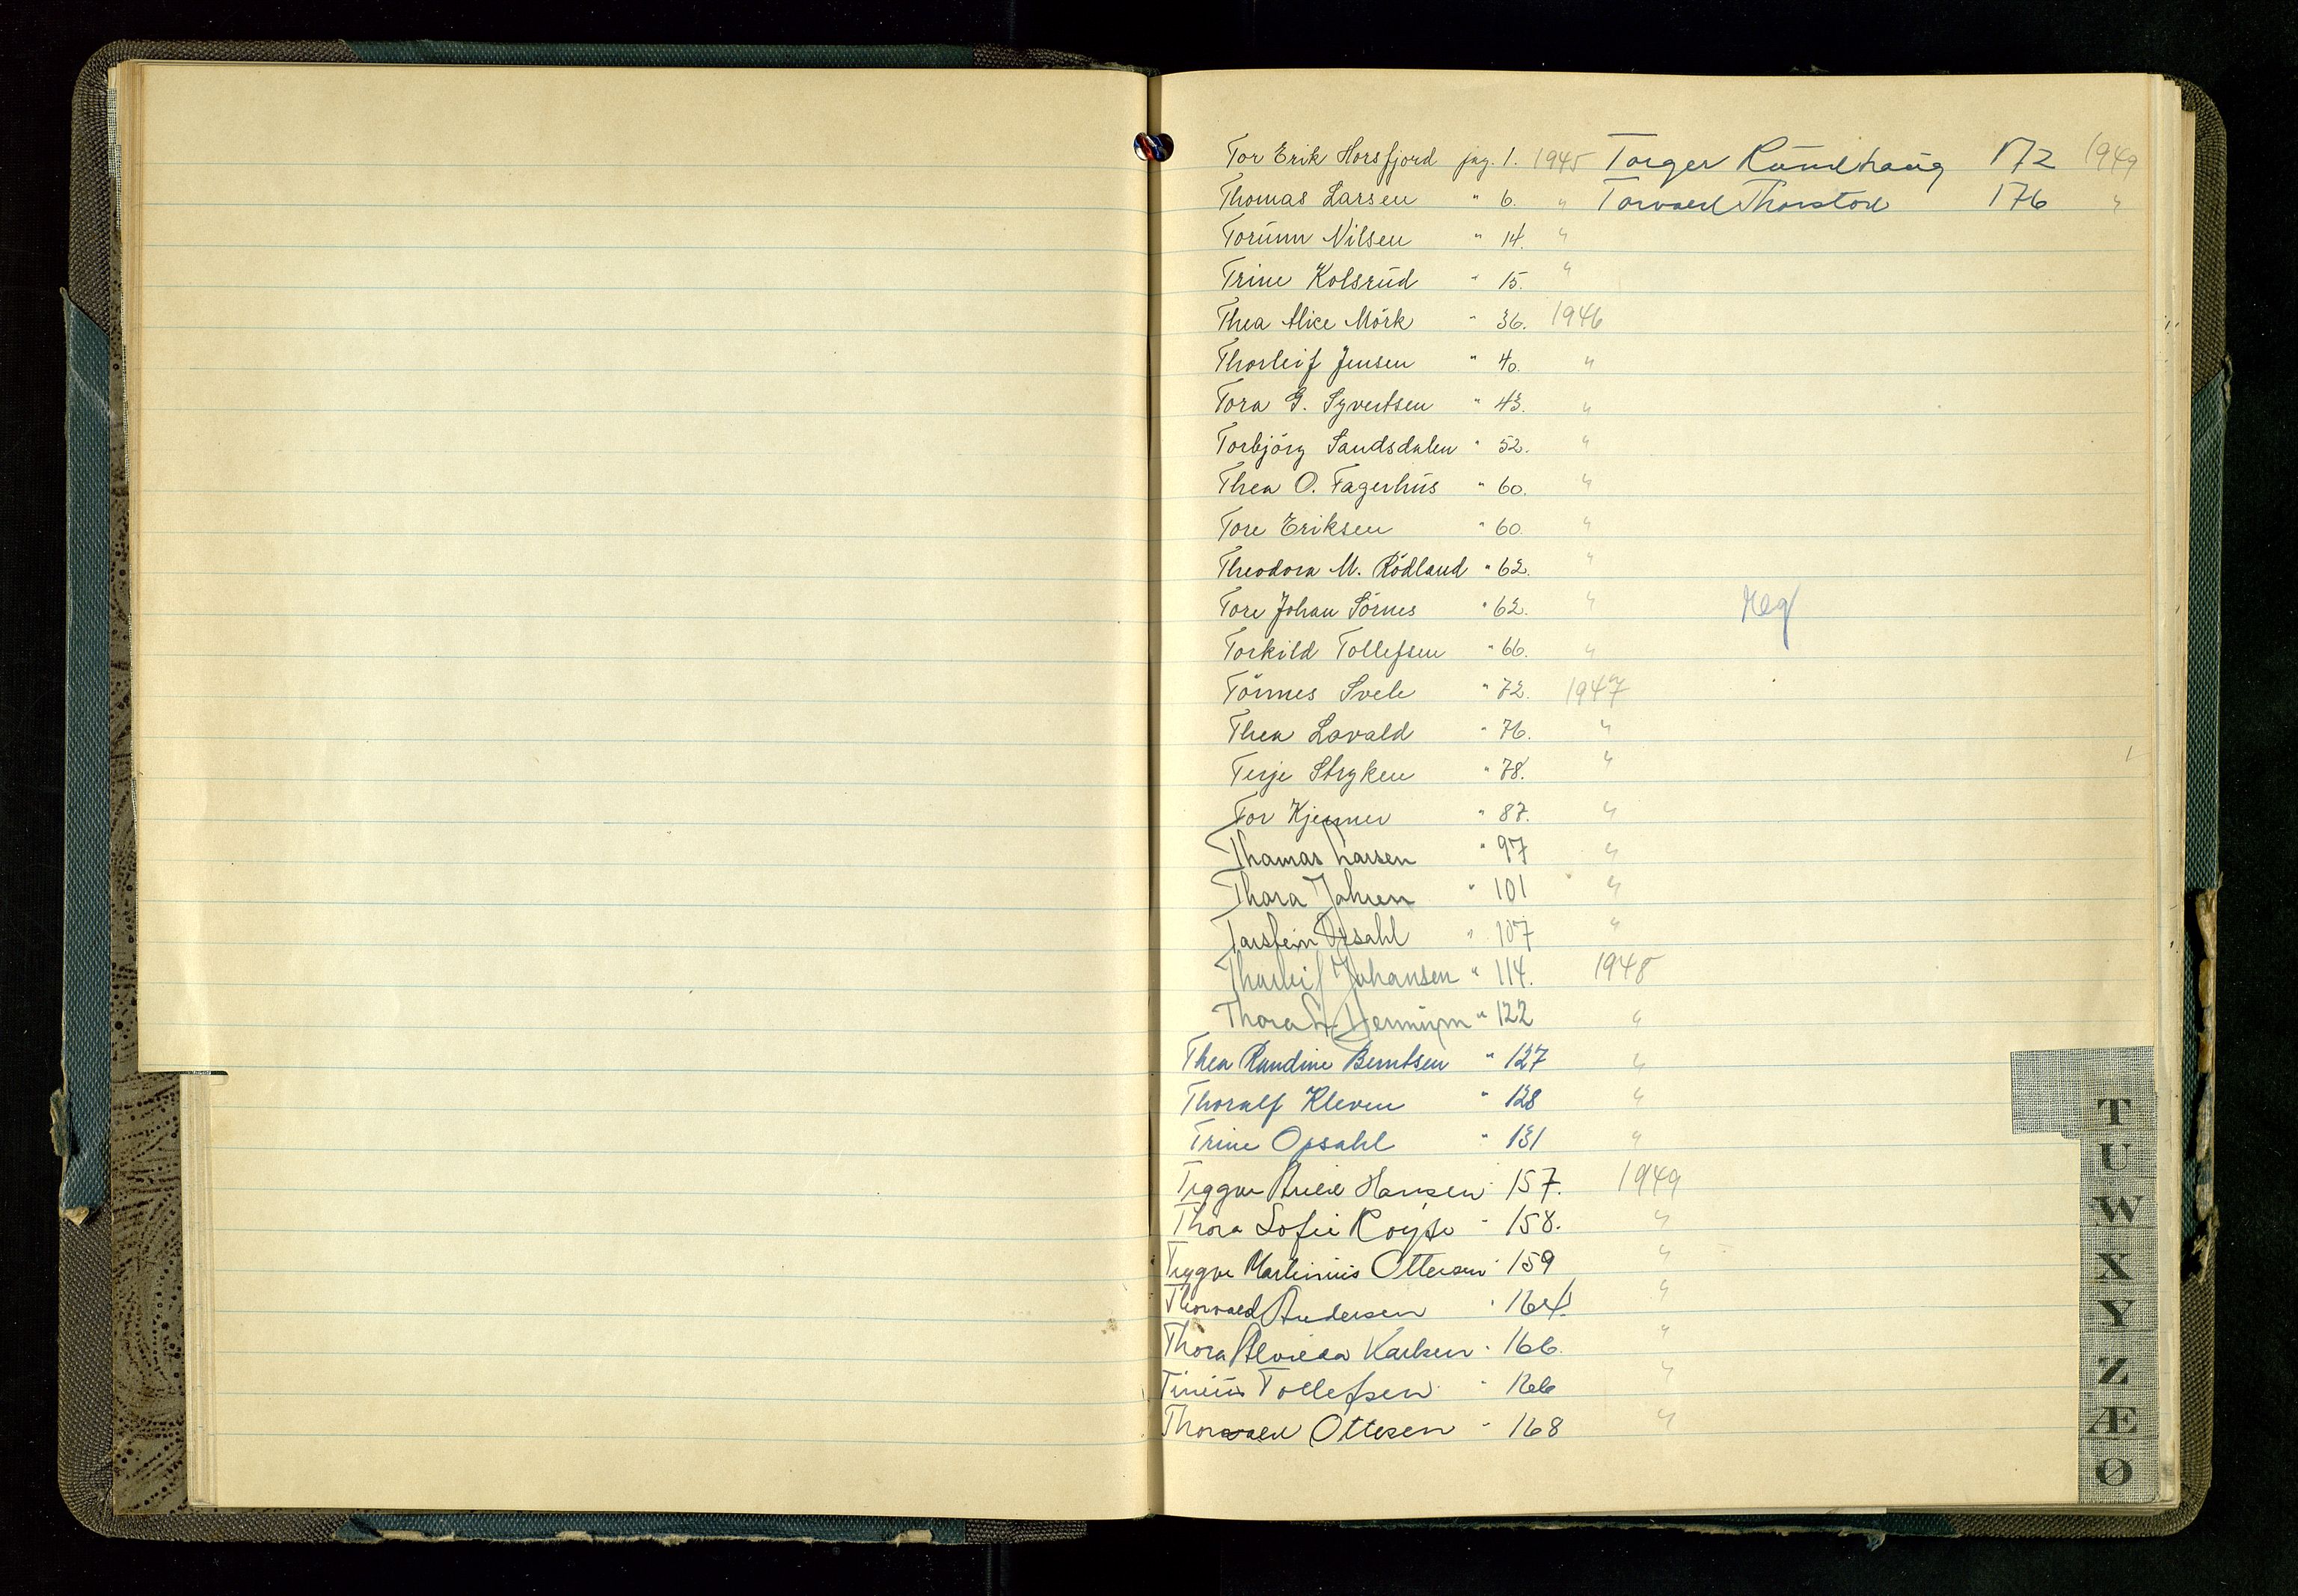 Tor Erik Horsfjord pag. 1. 1945 Torger Rundhaug 172 1949
Thomas Larsen " 6. " Torvald Thorstad 176 "
Torunn Nilsen " 14. "
Trine Kolsrud " 15. "
Thea Alice Mörk " 36. 1946
Thorleif Jensen " 40. "
Tora G. Syvertsen " 43. "
Torbjörg Sandsdalen " 52. "
Thea O. Fagerhus " 60. "
Tore Eriksen " 60. "
Theodora M. Rödland " 62. "
Tore Johan Sörnes " 62. " Reg
Torkild Tollefsen " 66. "
Tönnes Svele " 72. 1947
Thea Lavald " 76. "
Terje Stryken " 78. "
Tor Kjemner " 87. "
Thomas Larsen " 97 "
Thora Jahren " 101 "
Torstein Opsahl " 107 "
Thorleif Johansen " 114. 1948
Thora " 122 "
Thea Randine Berntsen " 127 "
Thoralf Kleven " 128 "
Trine Opsahl " 131 "
Tryggve Arild Hansen " 157. 1949
Thora Sofie " 158. "
Trygve Martinius Ottersen " 159 "
Thorvald Andersen " 164. "
Thora Alvilda Karlsen " 166. "
Tinius Tollefsen " 166 "
Thorvald Ottesen " 168 "
T
U
W
X
Y
Z
Æ
Ø